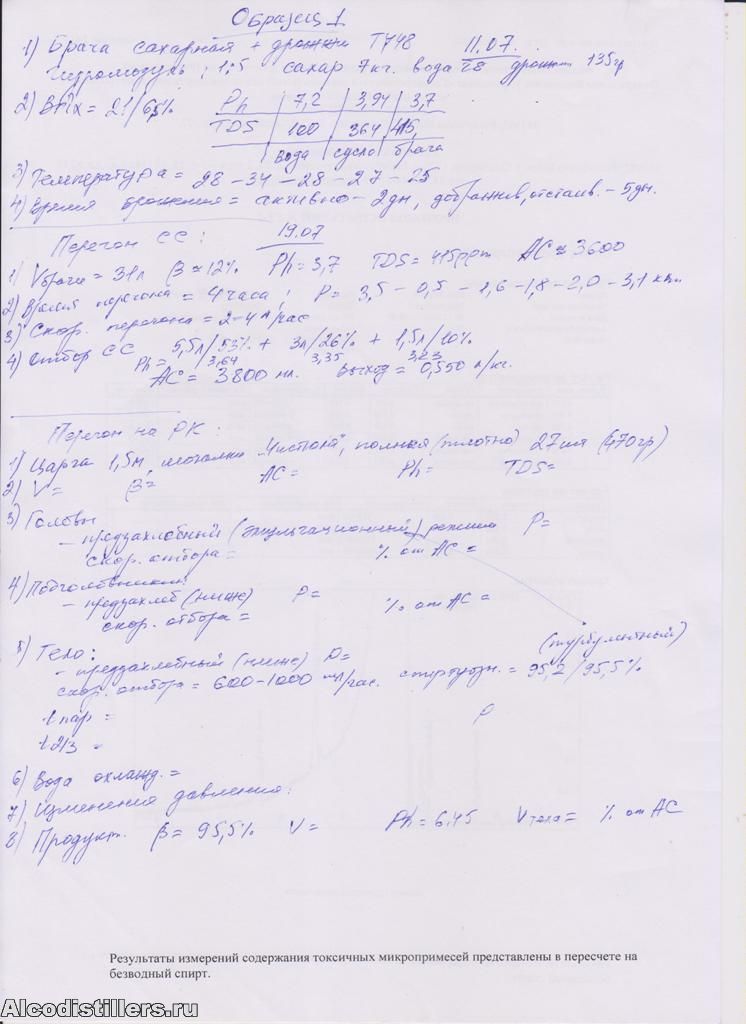 Образец 1
1) Брага сахарная + дрожжи Т748 11.07.
Гидромодуль: 1:5 сахар 7кг. вода 28 дрожж 135гр
2) Brix = 21/6,5%
Ph 7,2 3,94 3,7
TDS 100 364 415
вода сусло брага
3) Температура = 28 – 34 – 28 – 27 – 25
4) Время брожения = активно – 2дн, дображив, отстаив. – 5дн.
Перегон СС: 19.07
1) Vбраги = 31л β ≈ 12% Ph = 3,7 TDS = 415ppm АС ≈ 3600
2) Время перегона = 4 часа; P = 3,5 – 0,5 – 1,6 – 1,8 – 2,0 – 3,1 квт
3) Скор. перегона = 2–4 л/час
4) Отбор СС 5,5л/53% + 3л/26% + 1,5л/10%
Ph = 3,64 3,35 3,23
АС = 3800 мл. выход = 0,550 л/кг.
Перегон на РК:
1) Царга 1,5м, мочалки "Чистюля", полная (плотно) 27шт (470гр)
2) V = β = АС = Ph = TDS =
3) Головы
– предзахлебный (эмульгационный) режим P =
скор. отбора = % от АС =
4) Подголовники:
– предзахлеб (ниже) P = % от АС =
скор. отбора =
(турбулентный)
5) Тело:
– предзахлебный (ниже) P =
скор. отбора = 600–1000 мл/час. спиртуозн. = 95,2/95,5%
t пар = P
t 2/3 =
6) Вода охлажд. =
7) Изменения давления:
8) Продукт. β = 95,5% V = Ph = 6,45 Vтела = % от АС
Результаты измерений содержания токсичных микропримесей представлены в пересчете на
безводный спирт.
Alcodistillers.ru